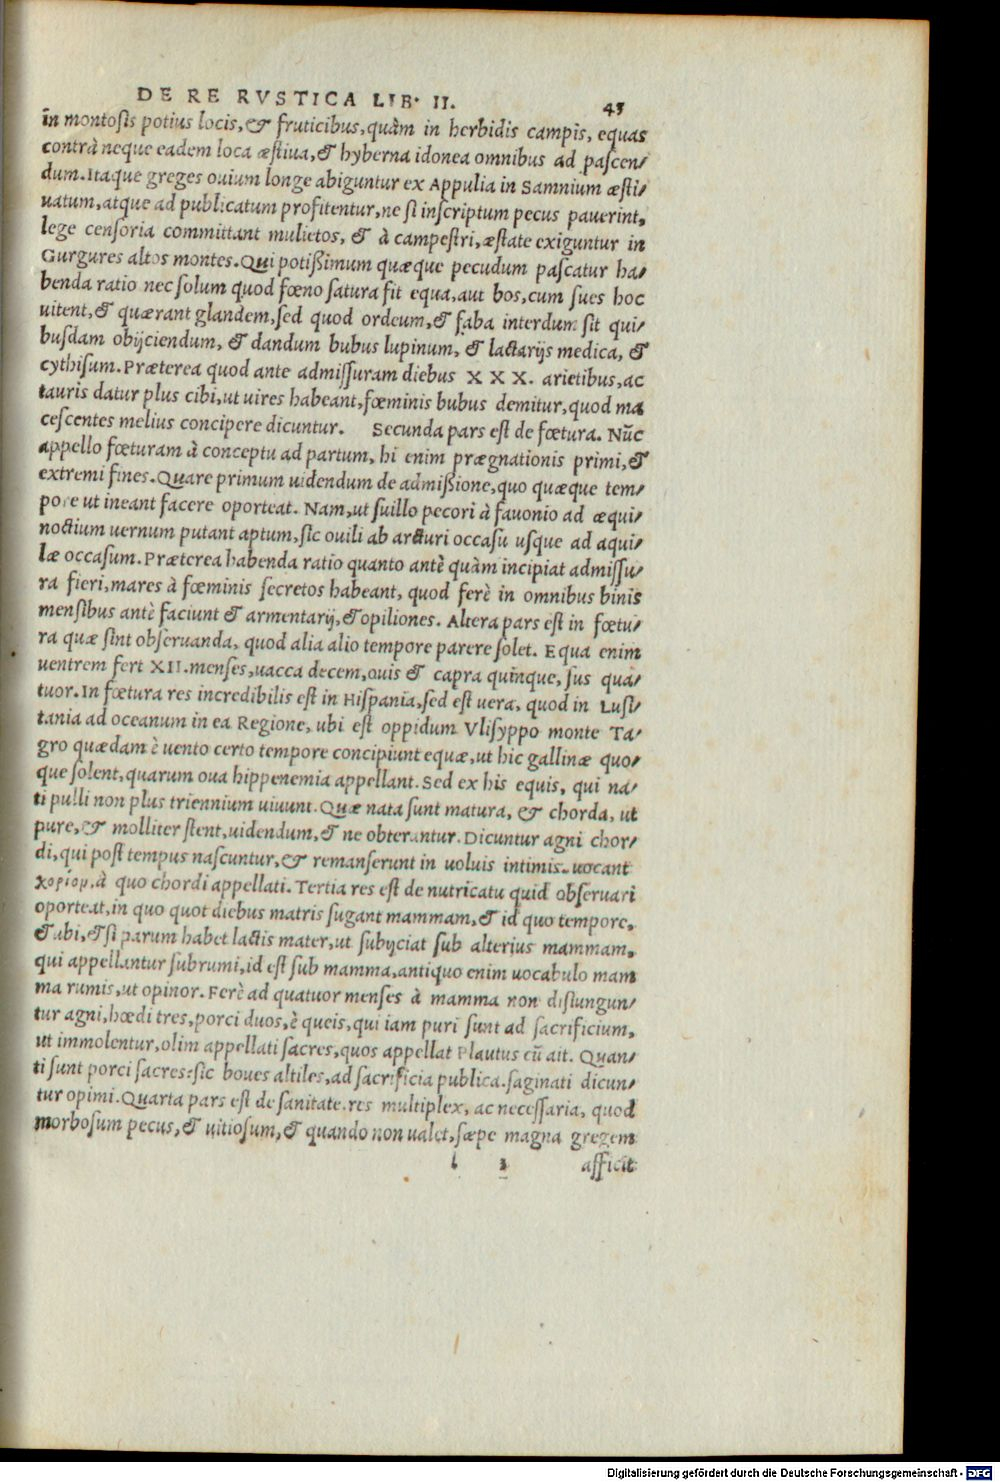 DE RE RVSTICA LIB· II. 43
in montosis potius locis, & fruticibus, quàm in herbidis campis, equas
contrà neque eadem loca æstiua, & hyberna idonea omnibus ad pascen/
dum. Itaque greges ouium longe abiguntur ex Appulia in Samnium æsti/
uatum, atque ad publicatum profitentur, ne si inscriptum pecus pauerint,
lege censoria committant mulietos, & à campestri, æstate exiguntur in
Gurgures altos montes. Qui potißimum quæque pecudum pascatur ha/
benda ratio nec solum quod fœno satura fit equa, aut bos, cum sues hoc
uitent, & quærant glandem, sed quod ordeum, & faba interdum sit qui/
busdam obijciendum, & dandum bubus lupinum, & lactarijs medica, &
cythisum. Præterea quod ante admissuram diebus XXX. arietibus, ac
tauris datur plus cibi, ut uires habeant, fœminis bubus demitur, quod ma
cescentes melius concipere dicuntur. Secunda pars est de fœtura. Nūc
appello fœturam à conceptu ad partum, hi enim prægnationis primi, &
extremi fines. Quare primum uidendum de admißione, quo quæque tem/
pore ut ineant facere oporteat. Nam, ut suillo pecori à fauonio ad æqui/
noctium uernum putant aptum, sic ouili ab arcturi occasu usque ad aqui/
læ occasum. Præterea habenda ratio quanto antè quàm incipiat admissu/
ra fieri, mares à fœminis secretos habeant, quod ferè in omnibus binis
mensibus antè faciunt & armentarij, & opiliones. Altera pars est in fœtu/
ra quæ sint obseruanda, quod alia alio tempore parere solet. Equa enim
uentrem fert XII. menses, uacca decem, ouis & capra quinque, sus qua/
tuor. In fœtura res incredibilis est in Hispania, sed est uera, quod in Lusi/
tania ad oceanum in ea Regione, ubi est oppidum Vlisyppo monte Ta/
gro quædam è uento certo tempore concipiunt equæ, ut hic gallinæ quo/
que solent, quarum oua hippenemia appellant. Sed ex his equis, qui na/
ti pulli non plus triennium uiuunt. Quæ nata sunt matura, & chorda, ut
pure, & molliter stent, uidendum, & ne obterantur. Dicuntur agni chor/
di, qui post tempus nascuntur, & remanserunt in uoluis intimis. uocant
χορίομ, à quo chordi appellati. Tertia res est de nutricatu quid obseruari
oporteat, in quo quot diebus matris sugant mammam, & id quo tempore,
& ubi, & si parum habet lactis mater, ut subijciat sub alterius mammam,
qui appellantur subrumi, id est sub mamma, antiquo enim uocabulo mam
ma rumis, ut opinor. Ferè ad quatuor menses à mamma non disiungun/
tur agni, hœdi tres, porci duos, è queis, qui iam puri sunt ad sacrificium,
ut immolentur, olim appellati sacres, quos appellat Plautus cū ait. Quan/
ti sunt porci sacres: sic boues altiles, ad sacrificia publica. saginati dicun/
tur opimi. Quarta pars est de sanitate. res multiplex, ac necessaria, quod
morbosum pecus, & uitiosum, & quando non ualet, sæpe magna gregem
3 afficit
Digitalisierung gefördert durch die Deutsche Forschungsgemeinschaft - DFG